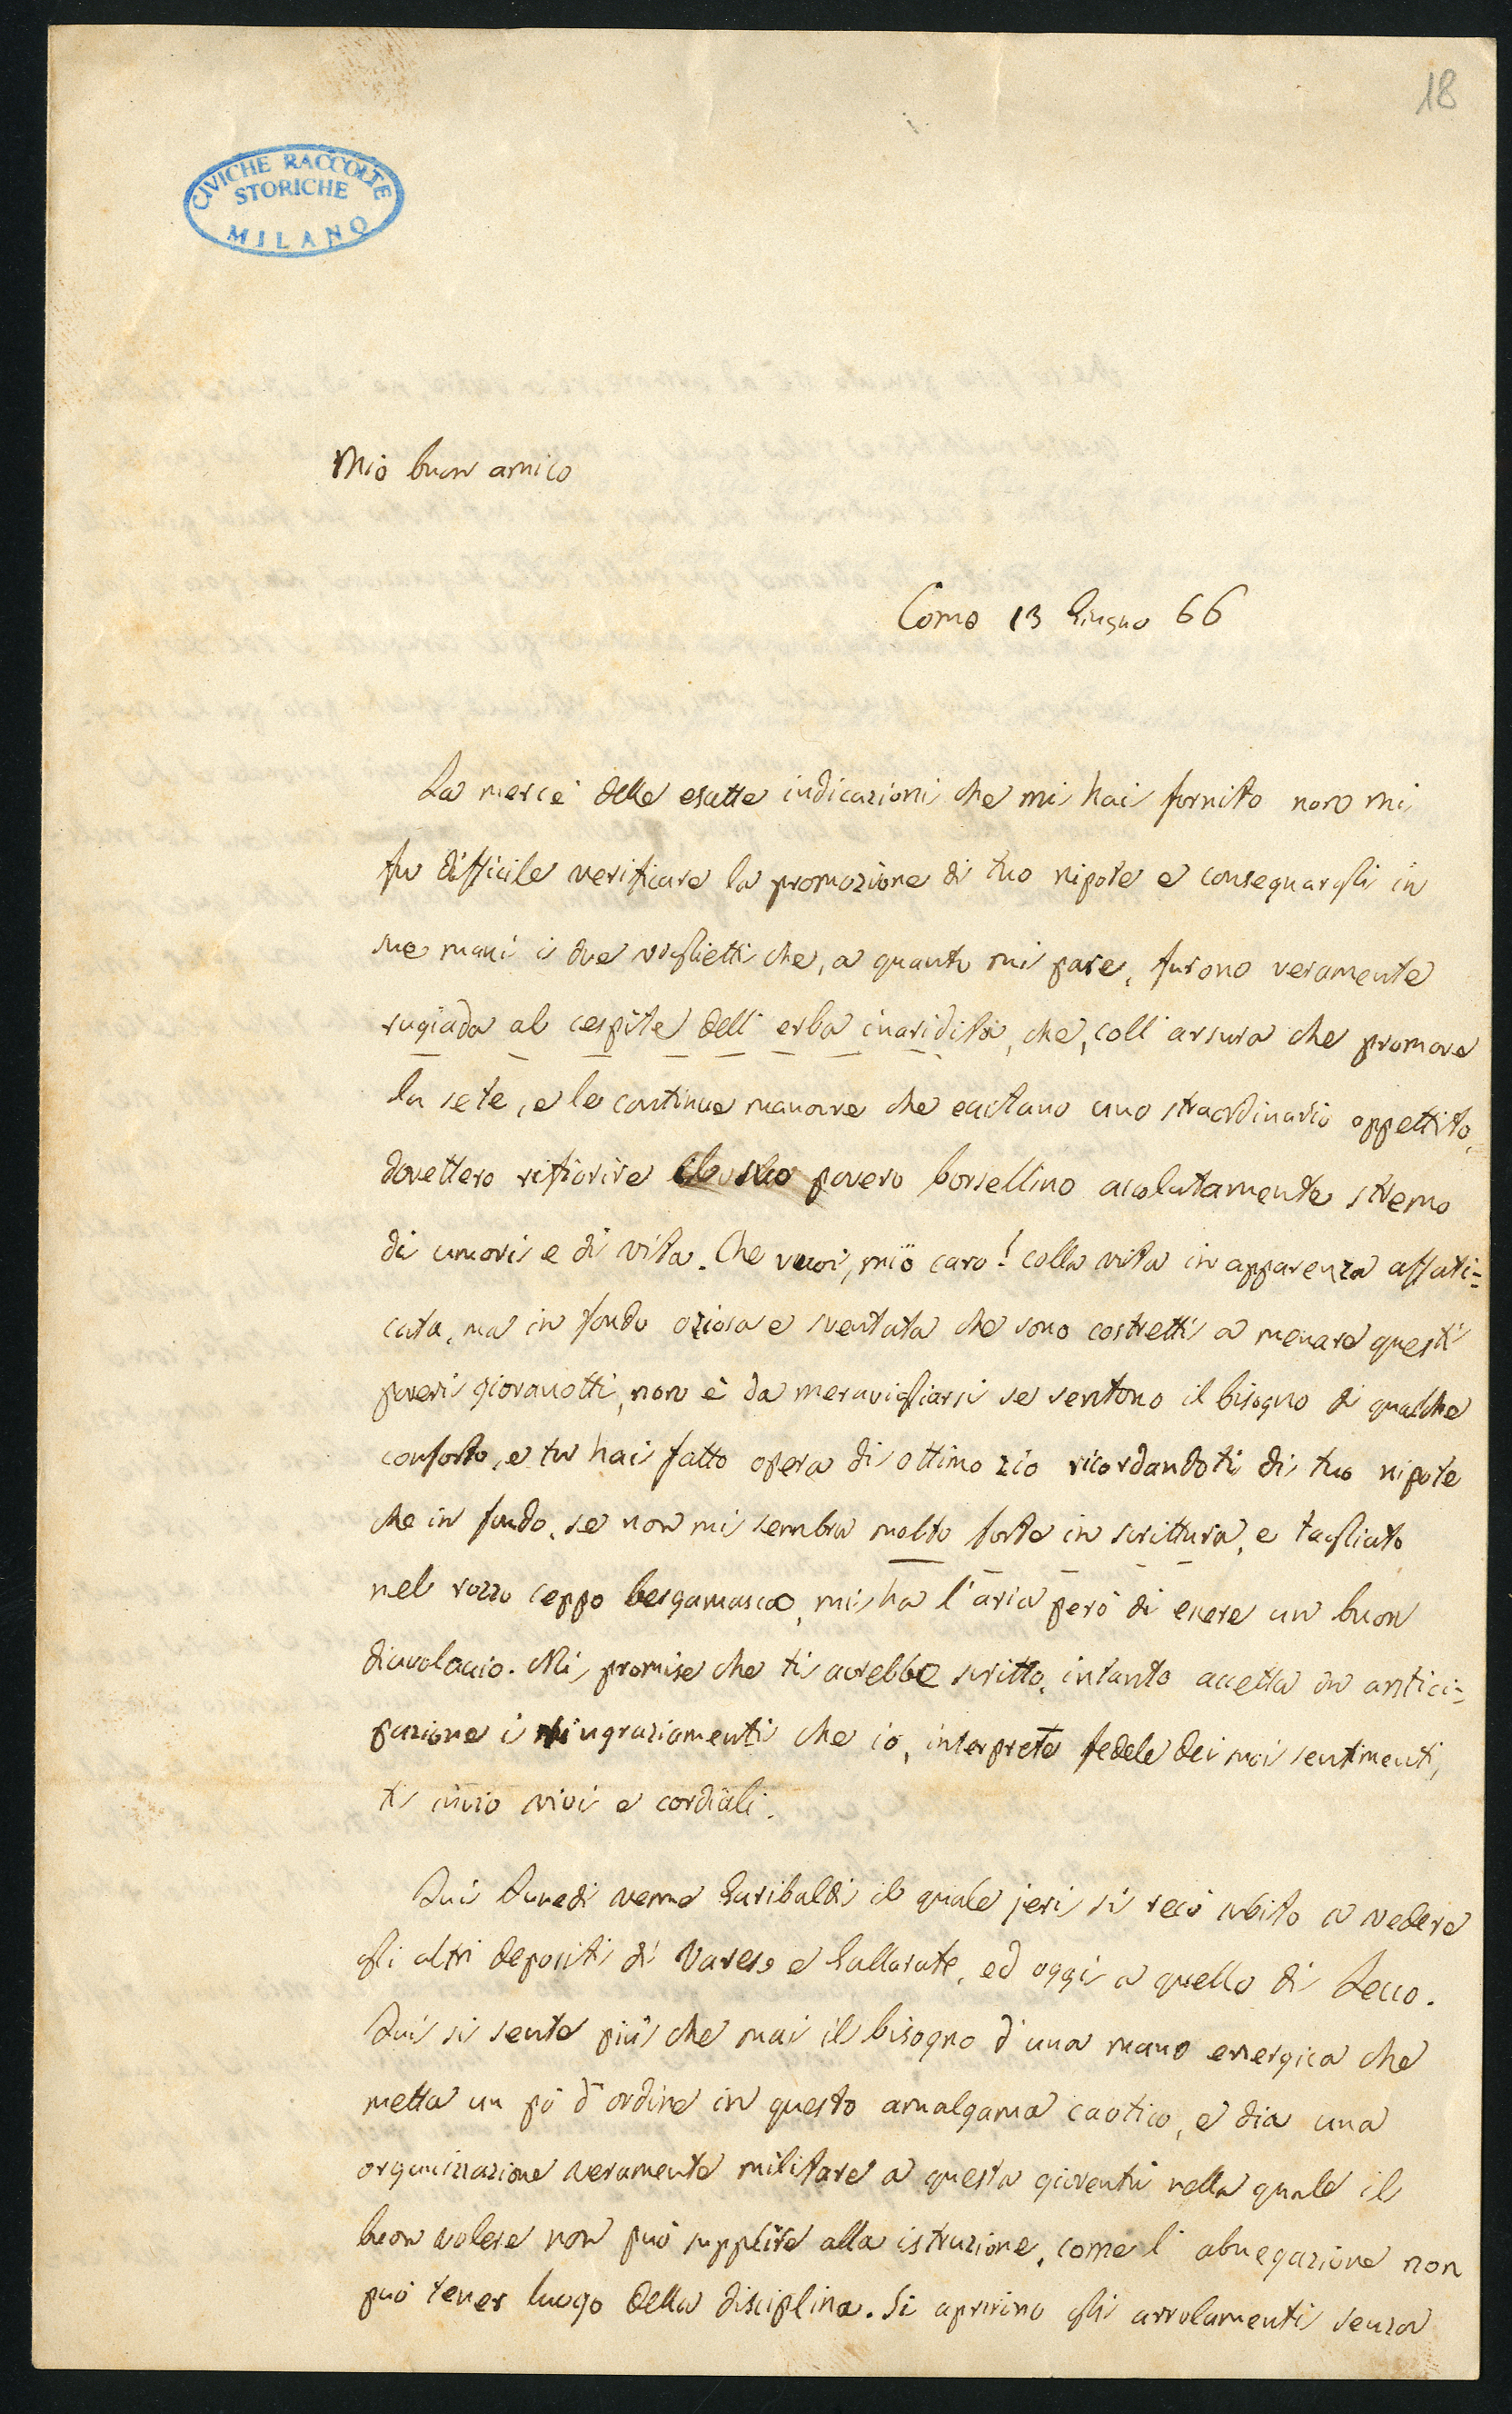 18
CIVICHE RACCOLTE
STORICHE
MILANO
Mio buon amico
Como 13 Giugno 66
La mercè delle esatte indicazioni che mi hai fornito non mi
fu difficile verificare la promozione di tuo nipote e consegnargli in
sue mani i due viglietti che, a quanto mi pare, furono veramente
rugiada al cespite dell'erba inaridita, che, coll'arsura che promove
la sete, e le continue manovre che eccitano uno straordinario appettito,
dovettero rifiorire il suo povero borsellino assolutamente stremo
di umori e di vita. Che vuoi, mio caro! colla vita in apparenza affati=
cata, ma in fondo oziosa e sventata che sono costretti a menare questi
poveri giovanotti, non è da meravigliarsi se sentono il bisogno di qualche
conforto, e tu hai fatto opera di ottimo zio ricordandoti di tuo nipote
che in fondo, se non mi sembra molto forte in scrittura, e tagliato
nel rozzo ceppo bergamasco, mi ha l'aria però di essere un buon
diavolaccio. Mi promise che ti avrebbe scritto, intanto accetta in antici=
pazione i ringraziamenti che io, interprete fedele dei suoi sentimenti,
ti invio vivi e cordiali.
Qui Lunedi venne Garibaldi il quale jeri si recò subito a vedere
gli altri depositi di Varese e Gallarate, ed oggi a quello di Lecco.
Qui si sente più che mai il bisogno d'una mano energica che
metta un pò d'ordine in questo amalgama caotico, e dia una
organizzazione veramente militare a questa gioventù nella quale il
buon volere non può supplire alla istruzione, come l'abnegazione non
può tener luogo della disciplina. Si aprirono gli arrolamenti senza